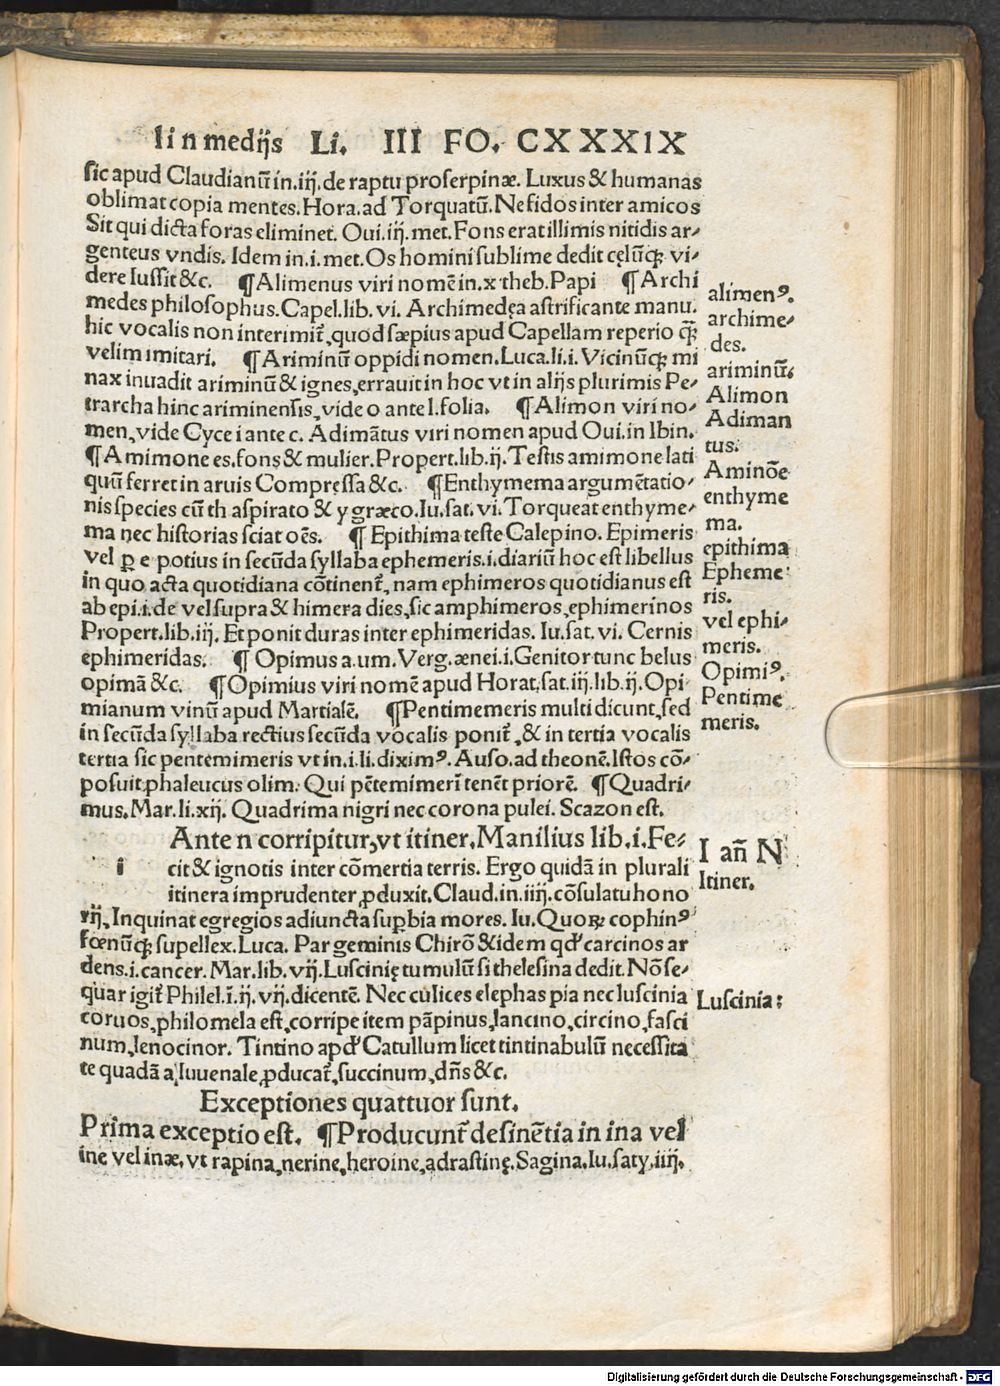 Ii n medijs Li. III FO. CXXXIX
sic apud Claudianū in.iij.de raptu proserpinæ. Luxus & humanas
oblimat copia mentes. Hora.ad Torquatū. Ne fidos inter amicos
Sit qui dicta foras eliminet. Oui.iij.met. Fons erat illimis nitidis ar⸗
genteus vndis. Idem in.i.met. Os homini sublime dedit cęlūq̨ vi⸗
dere Iussit &c. ¶Alimenus viri nomē in.x theb. Papi ¶Archi
medes philosophus. Capel.lib.vi. Archimedęa astrificante manu.
hic vocalis non interimit᷑, quod sæpius apud Capellam reperio q̨̄
velim imitari. ¶Ariminū oppidi nomen. Luca.li.i. Vicinūq̨ mi
nax inuadit ariminū & ignes, errauit in hoc vt in alijs plurimis Pe⸗
trarcha hinc ariminensis, vide o ante l. folia. ¶Alimon viri no⸗
men, vide Cyce i ante c. Adimātus viri nomen apud Oui.in Ibin.
¶Amimone es.fons & mulier. Propert.lib.ij. Testis amimone lati
quū ferret in aruis Compręssa &c. ¶Enthymema argumētatio⸗
nis species cū th aspirato & y græco. Iu.sat.vi. Torqueat enthyme⸗
ma nec historias sciat oēs. ¶Epithima teste Calepino. Epimeris
vel ꝑ e potius in secūda syllaba ephemeris.i.diariū hoc est libellus
in quo acta quotidiana cōtinent᷑, nam ephimeros quotidianus est
ab epi.i.de vel supra & himera dies, sic amphimeros, ephimerinos
Propert.lib.iij. Et ponit duras inter ephimeridas. Iu.sat.vi. Cernis
ephimeridas. ¶Opimus a.um. Verg.ænei.i. Genitor tunc belus
opimā &c. ¶Opimius viri nomē apud Horat.sat.iij.lib.ij. Opi
mianum vinū apud Martialē. ¶Pentimemeris multi dicunt, sed
in secūda syllaba rectius secūda vocalis ponit᷑, & in tertia vocalis
tertia sic pentemimeris vt in.i.li.diximꝰ. Auso.ad theonē. Istos cō⸗
posuit phaleucus olim. Qui pētemimerī tenēt priorē. ¶Quadri⸗
mus. Mar.li.xij. Quadrima nigri nec corona pulei. Scazon est.
Ante n corripitur, vt itiner. Manilius lib.i. Fe⸗
i cit & ignotis inter cōmertia terris. Ergo quidā in plurali
itinera imprudenter ꝓduxit. Claud.in.iiij.cōsulatu hono
rij. Inquinat egregios adiuncta suꝑbia mores. Iu. Quoꝝ cophinꝰ
fœnūq̨ supellex. Luca. Par geminis Chirō & idem qd' carcinos ar
dens.i.cancer. Mar.lib.vij. Luscinię tumulū si thelesina dedit. Nō se⸗
quar igit᷑ Philel.ī.ij.vij.dicentē. Nec culices elephas pia nec luscinia
coruos, philomela est, corripe item pāpinus, lancino, circino, fasci
num, lenocinor. Tintino apd' Catullum licet tintinabulū necessita
te quadā a Iuuenale ꝓducat᷑, succinum, dn̄s &c.
Exceptiones quattuor sunt.
Prima exceptio est. ¶Producunt᷑ desinētia in ina vel
ine vel inæ, vt rapina, nerine, heroine, adrastinę. Sagina. Iu.saty.iiij.
alimenꝰ.
archime⸗
des.
ariminū.
Alimon
Adiman
tus.
Aminōe
enthyme
ma.
epithima
Epheme
ris.
vel ephi⸗
meris.
Opimiꝰ.
Pentime
meris.
I an̄ N
Itiner.
Luscinia:
Digitalisierung gefördert durch die Deutsche Forschungsgemeinschaft - DFG